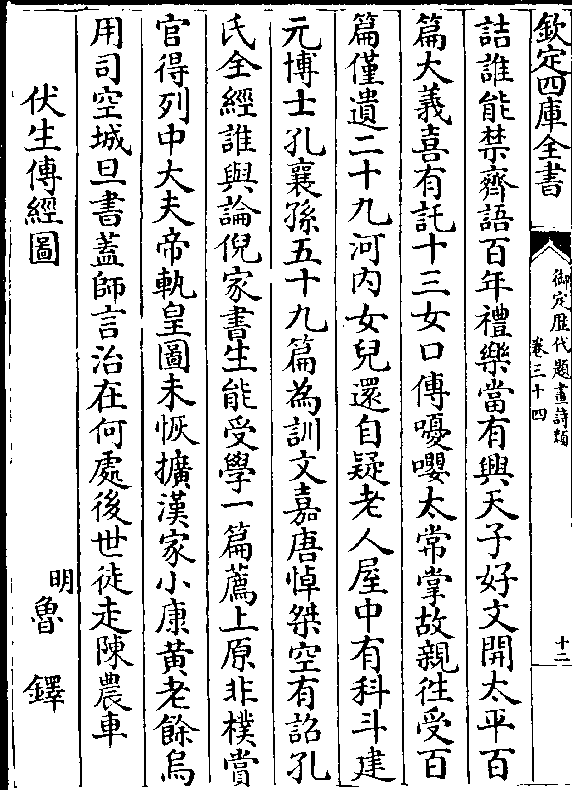 欽定四庫全書
御定歷代題畫詩類
卷三十四
十二
詰誰能禁齊語百年禮樂當有興天子好文開太平百
篇大義喜有託十三女口傳嚘嚶太常掌故親往受百
篇僅遺二十九河內女兒還自疑老人屋中有科斗建
元博士孔襄孫五十九篇為訓文嘉唐悼桀空有詔孔
氏全經誰與論倪家書生能受學一篇薦上原非樸賞
官得列中大夫帝軌皇圖未恢擴漢家小康黃老餘烏
用司空城旦書蓋師言治在何處後世徒走陳農車
伏生傳經圖
明魯鐸